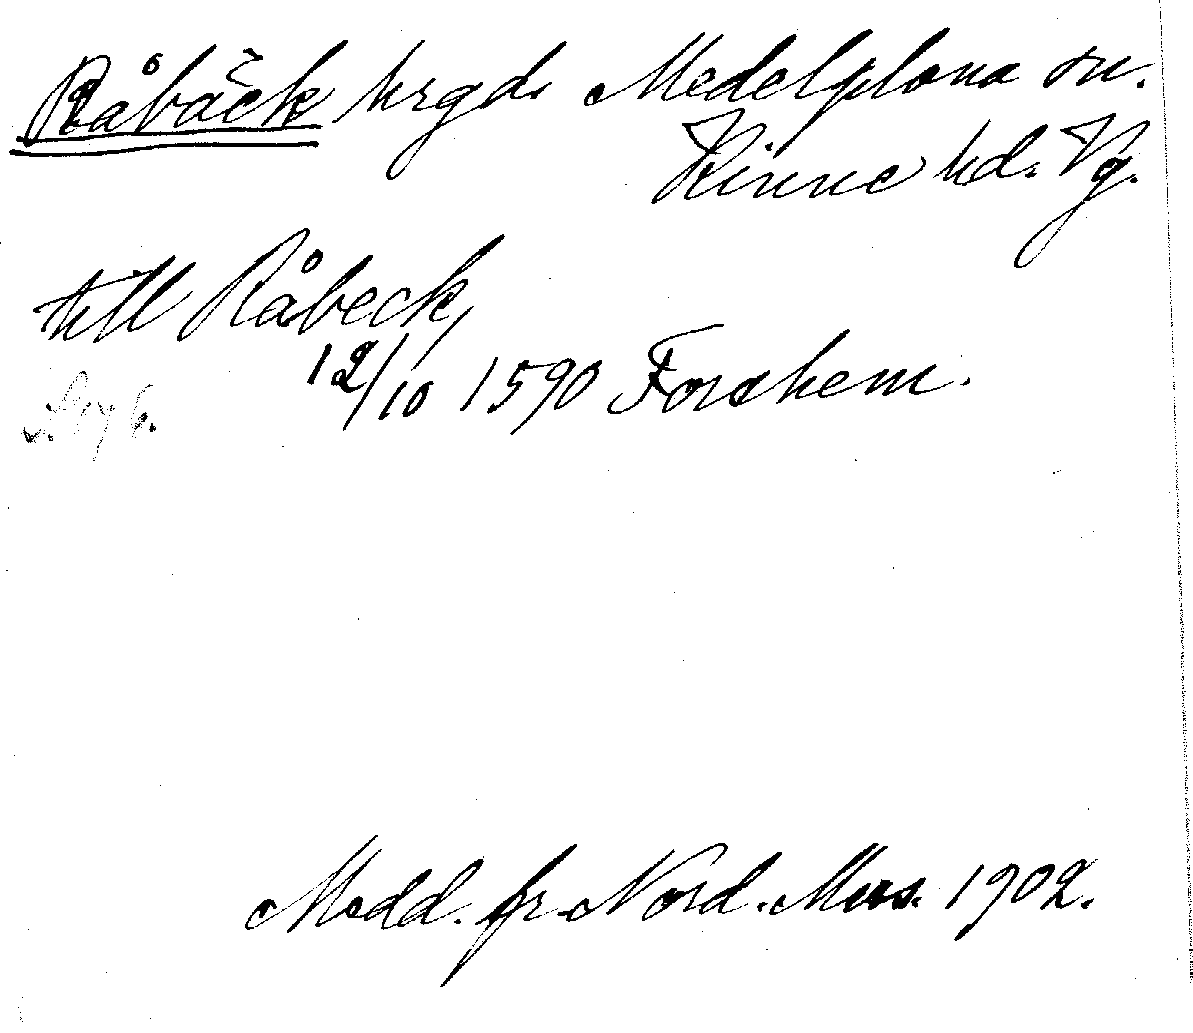 Råbäck hrgd. Medelplana sn.
Kinne hd. Vg.
till Råbeck,
12/10 1590 Forshem.
Medd. fr. Nord. Mus. 1902.